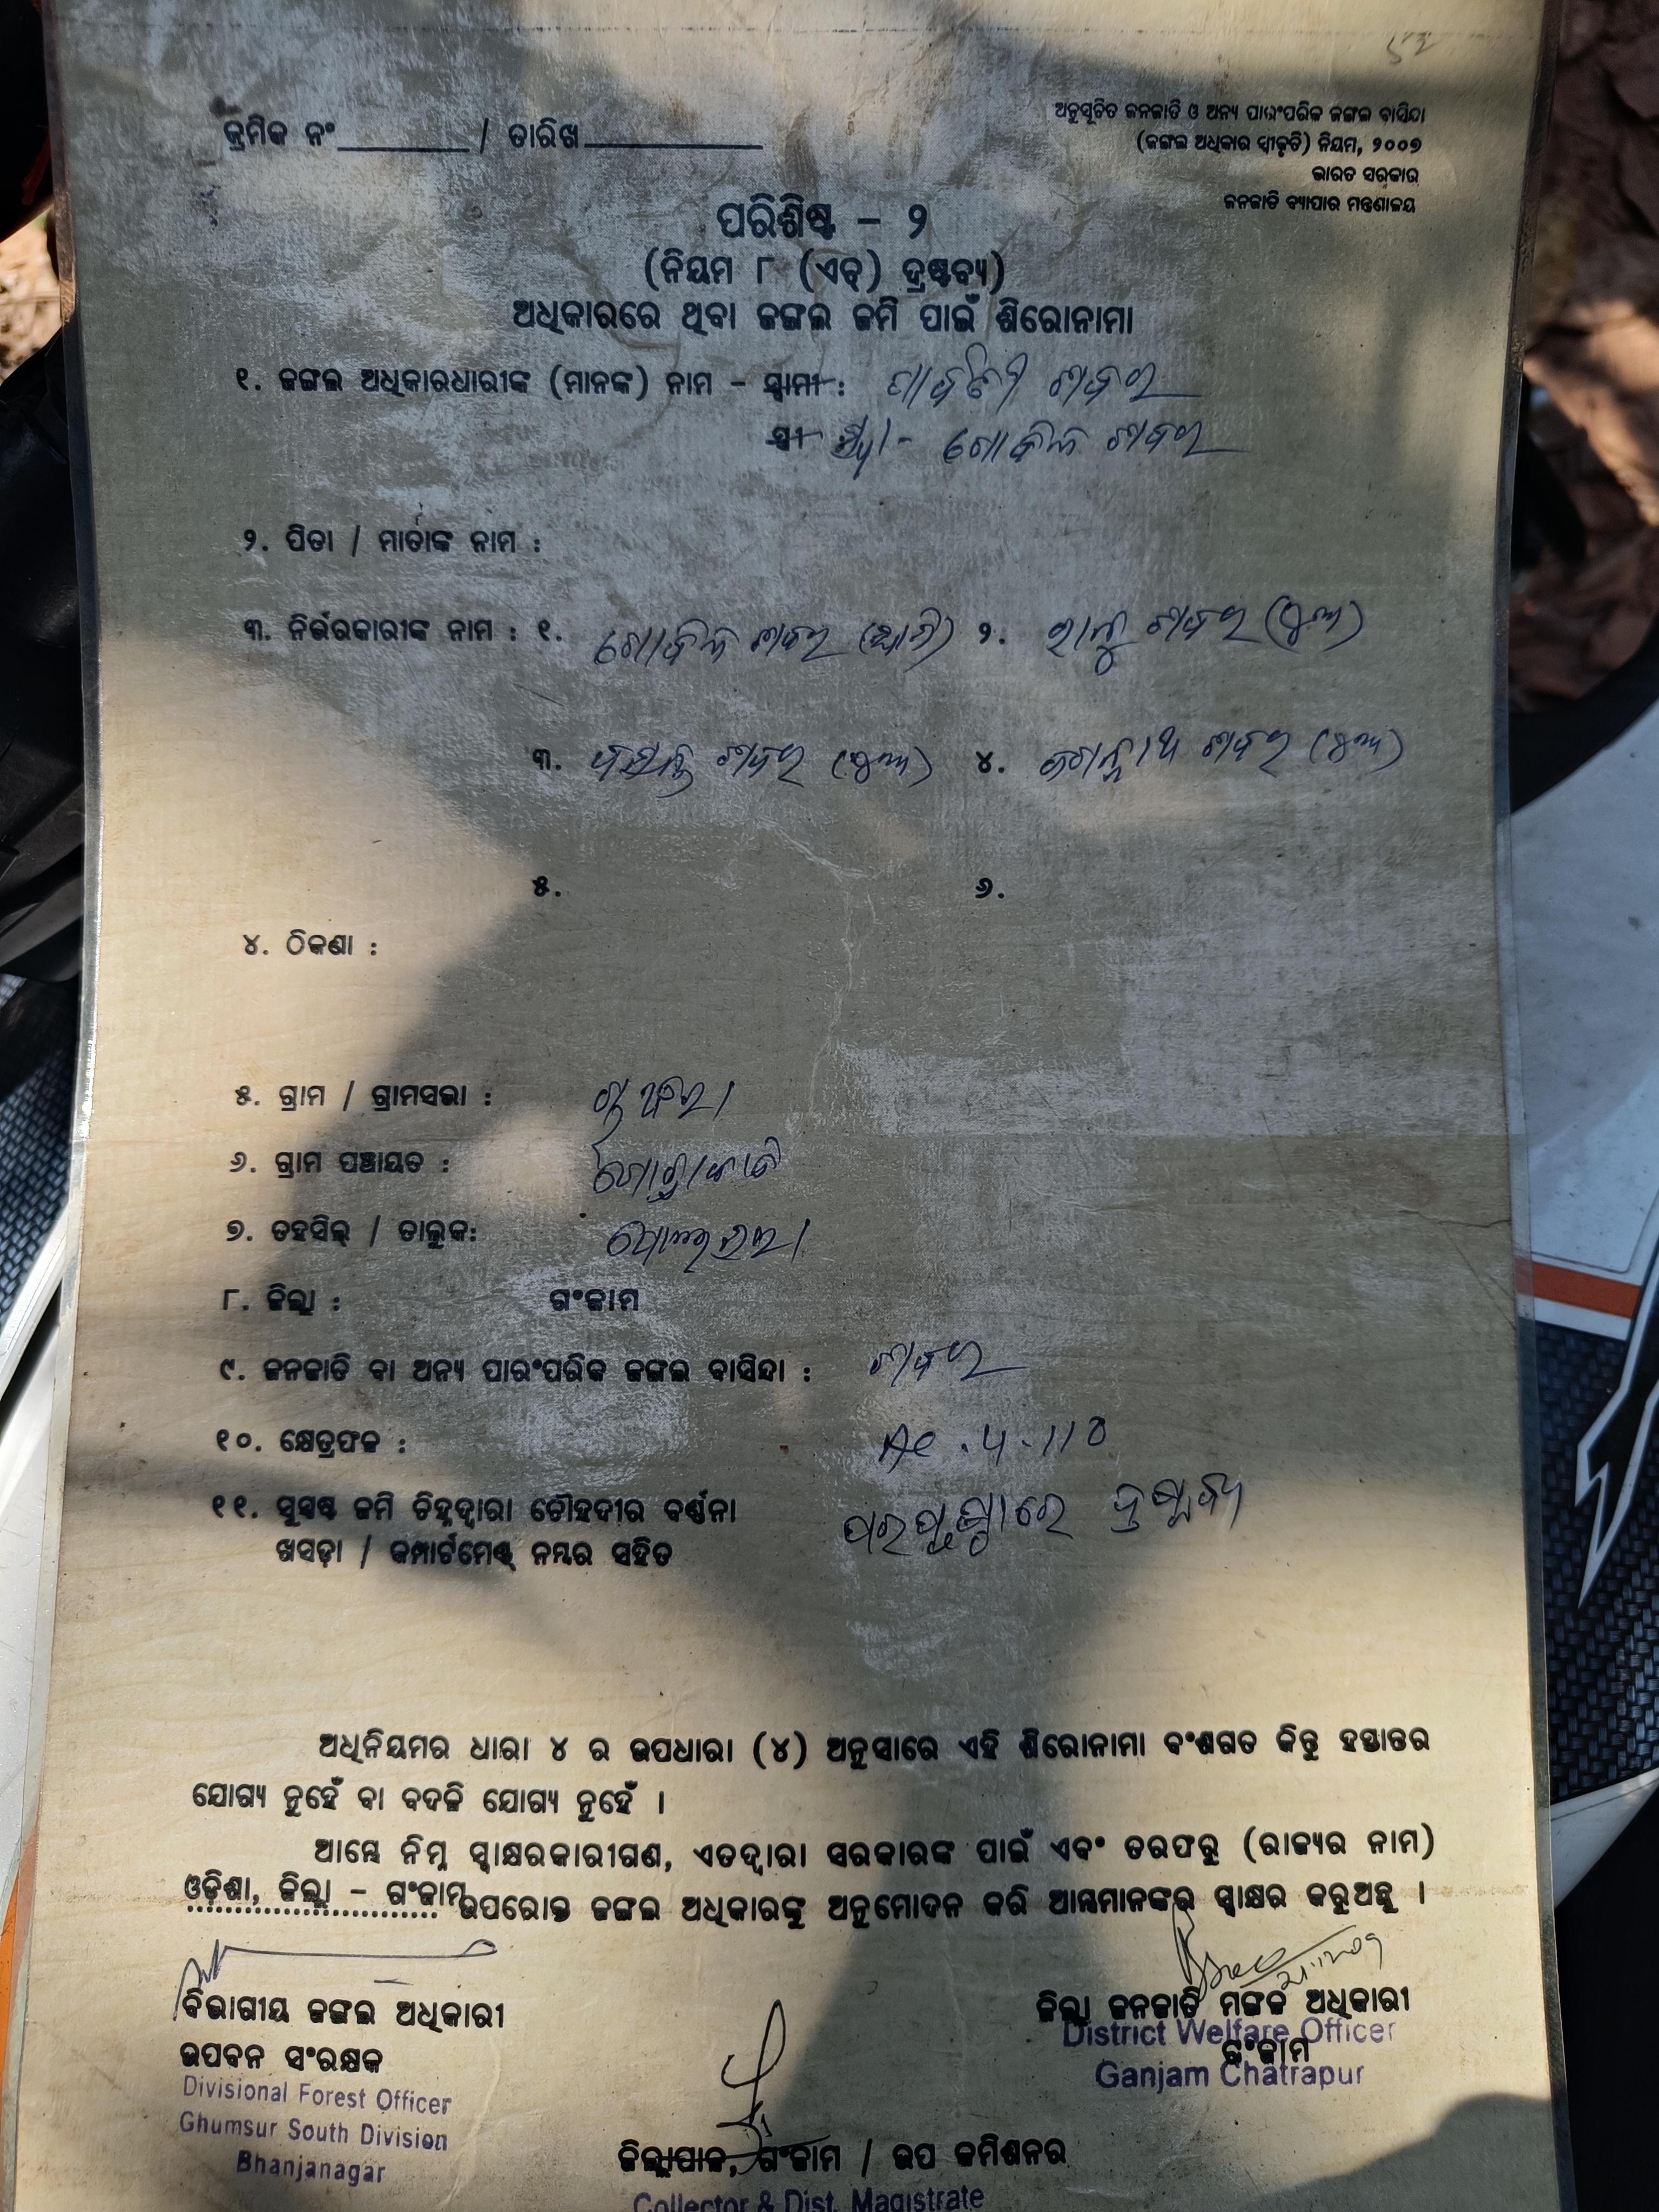 ୫୨
ଅନୁସୂଚିତ ଜନଜାତି ଓ ଅନ୍ୟ ପାରଂପରିକ ଜଙ୍ଗଲ ବାସିନ୍ଦା
(ଜଙ୍ଗଲ ଅଧିକାର ସ୍ୱୀକୃତି) ନିୟମ, ୨୦୦୭
ଭାରତ ସରକାର
ଜନଜାତି ବ୍ୟାପାର ମନ୍ତ୍ରଣାଳୟ
କ୍ରମିକ ନଂ________ / ତାରିଖ___________
ପରିଶିଷ୍ଟ – ୨
(ନିୟମ ୮ (ଏଚ୍) ଦ୍ରଷ୍ଟବ୍ୟ)
ଅଧିକାରରେ ଥିବା ଜଙ୍ଗଲ ଜମି ପାଇଁ ଶିରୋନାମା
୧. ଜଙ୍ଗଲ ଅଧିକାରଧାରୀଙ୍କ (ମାନଙ୍କ) ନାମ – ସ୍ୱାମୀ : ପାର୍ବତୀ ଶବର
ସ୍ତ୍ରୀ ସ୍ୱା- ଗୋବିନ୍ଦ ଶବର
୨. ପିତା / ମାତାଙ୍କ ନାମ :
୩. ନିର୍ଭରକାରୀଙ୍କ ନାମ : ୧. ଗୋବିନ୍ଦ ଶବର (ସ୍ୱାମୀ) ୨. ଶବର (ପୁଅ)
୩. ଶବର (ପୁଅ) ୪. ଜଗନ୍ନାଥ ଶବର (ପୁଅ)
୫. ୬.
୪. ଠିକଣା :
୫. ଗ୍ରାମ / ଗ୍ରାମସଭା :
୬. ଗ୍ରାମ ପଞ୍ଚାୟତ :
୭. ତହସିଲ୍ / ତାଲୁକ:
୮. ଜିଲ୍ଲା : ଗଂଜାମ
୯. ଜନଜାତି ବା ଅନ୍ୟ ପାରଂପରିକ ଜଙ୍ଗଲ ବାସିନ୍ଦା : ଶବର
୧୦. କ୍ଷେତ୍ରଫଳ : Ac . 4 . 110
୧୧. ସୁସ୍ପଷ୍ଟ ଜମି ଚିହ୍ନଦ୍ୱାରା ଚୌହଦୀର ବର୍ଣ୍ଣନା ପରପୃଷ୍ଠାରେ ଦ୍ରଷ୍ଟବ୍ୟ
ଖସଡ଼ା / କମ୍ପାର୍ଟମେଣ୍ଟ୍ ନମ୍ବର ସହିତ
ଅଧିନିୟମର ଧାରା ୪ ର ଉପଧାରା (୪) ଅନୁସାରେ ଏହି ଶିରୋନାମା ବଂଶଗତ କିନ୍ତୁ ହସ୍ତାନ୍ତର
ଯୋଗ୍ୟ ନୁହେଁ ବା ବଦଳି ଯୋଗ୍ୟ ନୁହେଁ ।
ଆମ୍ଭେ ନିମ୍ନ ସ୍ୱାକ୍ଷରକାରୀଗଣ, ଏତଦ୍ୱାରା ସରକାରଙ୍କ ପାଇଁ ଏବଂ ତରଫରୁ (ରାଜ୍ୟର ନାମ)
ଓଡ଼ିଶା, ଜିଲ୍ଲା – ଗଂଜାମ ଉପରୋକ୍ତ ଜଙ୍ଗଲ ଅଧିକାରଙ୍କୁ ଅନୁମୋଦନ କରି ଆମ୍ଭମାନଙ୍କର ସ୍ୱାକ୍ଷର କରୁଅଛୁ ।
ବିଭାଗୀୟ ଜଙ୍ଗଲ ଅଧିକାରୀ
ଉପବନ ସଂରକ୍ଷକ
Divisional Forest Officer
Ghumsur South Division
Bhanjanagar
ଜିଲ୍ଲା ଜନଜାତି ମଙ୍ଗଳ ଅଧିକାରୀ
District Welfare Officer
ଗଂଜାମ
Ganjam Chatrapur
ଜିଲ୍ଲାପାଳ, ଗଂଜାମ / ଉପ କମିଶନର
Collector & Dist. Magistrate